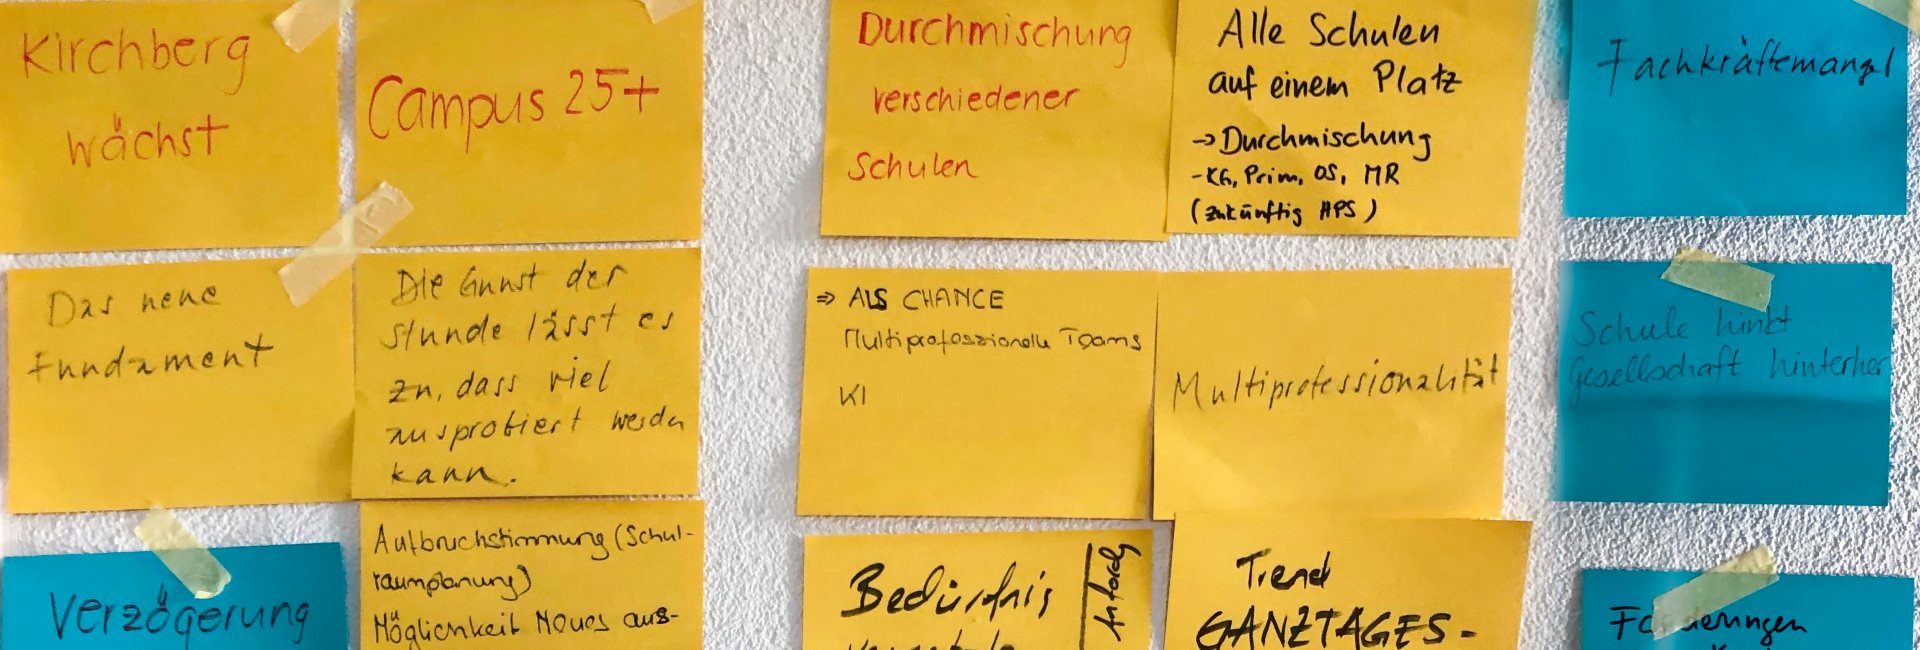 Kirchberg
wächst
Campus 25+
Durchmischung
verschiedener
Schulen
Alle Schulen
auf einem Platz
→ Durchmischung
- KG, Prim, OS, MR
(zukünftig HPS)
Fachkräftemangel
Das neue
Fundament
Die Gunst der
Stunde lässt es
zu, dass viel
ausprobiert werden
kann.
⇒ ALS CHANCE
Multiprofessionelle Teams
KI
Multiprofessionalität
Schule hinkt
Gesellschaft hinterher
Verzögerung
Aufbruchstimmung (Schul-
raumplanung)
Möglichkeit Neues aus-
Bedürfnis
Trend
GANZTAGES-
Forderungen